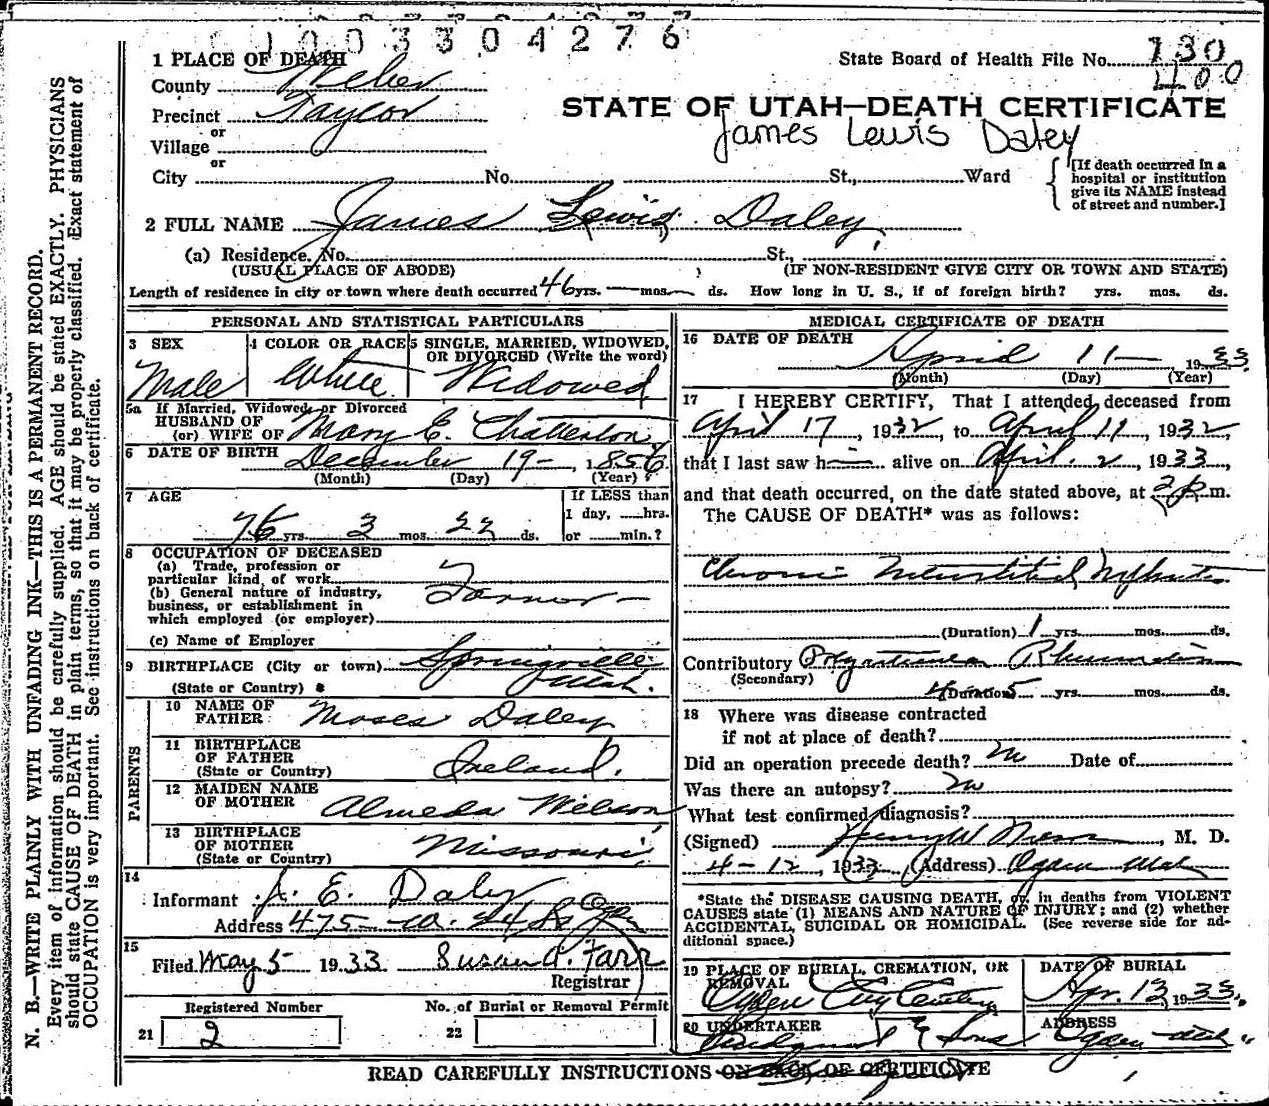 1003304276
1 PLACE OF DEATH
State Board of Health File No. 130
400
County Weber
STATE OF UTAH—DEATH CERTIFICATE
Precinct Taylor
James Lewis Daley
or
Village
or
City No. St., Ward
[If death occurred in a hospital or institution give its NAME instead of street and number.]
2 FULL NAME James Lewis Daley
(a) Residence. No. St.,
(USUAL PLACE OF ABODE) (IF NON-RESIDENT GIVE CITY OR TOWN AND STATE)
Length of residence in city or town where death occurred 46 yrs. — mos. — ds. How long in U. S., if of foreign birth? yrs. mos. ds.
PERSONAL AND STATISTICAL PARTICULARS
3 SEX
Male
4 COLOR OR RACE
White
5 SINGLE, MARRIED, WIDOWED,
OR DIVORCED (Write the word)
Widowed
5a If Married, Widowed, or Divorced
HUSBAND OF
(or) WIFE OF Mary E. Chatterton
6 DATE OF BIRTH December 19—, 1856
(Month) (Day) (Year)
7 AGE
76 yrs. 3 mos. 22 ds.
If LESS than
1 day, hrs.
or min.?
8 OCCUPATION OF DECEASED
(a) Trade, profession or
particular kind of work
(b) General nature of industry,
business, or establishment in
which employed (or employer)
Farmer—
(c) Name of Employer
9 BIRTHPLACE (City or town) Springville
(State or Country) Utah.
PARENTS
10 NAME OF
FATHER Moses Daley
11 BIRTHPLACE
OF FATHER
(State or Country) Ireland.
12 MAIDEN NAME
OF MOTHER Almeda Wilson
13 BIRTHPLACE
OF MOTHER
(State or Country) Missouri
14
Informant J. E. Daley
Address 475
15
Filed May 5 1933 Susan A. Farr
Registrar
Registered Number
21 2
No. of Burial or Removal Permit
22
MEDICAL CERTIFICATE OF DEATH
16 DATE OF DEATH
April 11— 1933
(Month) (Day) (Year)
17 I HEREBY CERTIFY, That I attended deceased from
April 17, 1932, to April 11, 1932,
that I last saw h— alive on April 2, 1933,
and that death occurred, on the date stated above, at 2 p.m.
The CAUSE OF DEATH* was as follows:
Chronic Interstitial Nephritis
(Duration) 1 yrs. mos. ds.
Contributory Rheumatism
(Secondary)
(Duration) 5 yrs. mos. ds.
18 Where was disease contracted
if not at place of death?
Did an operation precede death? no Date of
Was there an autopsy? no
What test confirmed diagnosis?
(Signed) Henry W., M. D.
4-12, 1933, (Address) Ogden Utah
*State the DISEASE CAUSING DEATH, or, in deaths from VIOLENT
CAUSES state (1) MEANS AND NATURE OF INJURY; and (2) whether
ACCIDENTAL, SUICIDAL OR HOMICIDAL. (See reverse side for ad-
ditional space.)
19 PLACE OF BURIAL, CREMATION, OR
REMOVAL
Ogden City Cemetery
DATE OF BURIAL
Apr. 13, 1933.
20 UNDERTAKER
& Sons
ADDRESS
Ogden Utah
READ CAREFULLY INSTRUCTIONS ON BACK OF CERTIFICATE
N. B.—WRITE PLAINLY WITH UNFADING INK—THIS IS A PERMANENT RECORD.
Every item of information should be carefully supplied. AGE should be stated EXACTLY. PHYSICIANS
should state CAUSE OF DEATH in plain terms, so that it may be properly classified. Exact statement of
OCCUPATION is very important. See instructions on back of certificate.